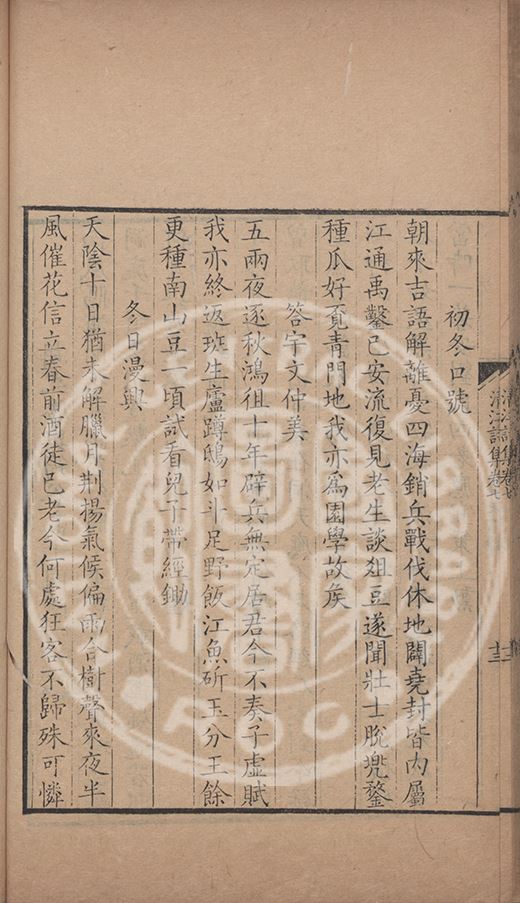 初冬口號
朝來吉語解離憂四海銷兵戰伐休地闢堯封皆內屬
江通禹鑿已安流復見老生談俎豆遂聞壯士脫兠鍪
種瓜好覔青門地我亦爲園學故矦
答宇文仲美
五兩夜逐秋鴻徂十年辟兵無定居君今不奏子虛賦
我亦終返班生廬蹲鴟如斗足野飯江魚斫玉分王餘
更種南山豆一頃試看兒子帶經鋤
冬日漫興
天陰十日猶未解臘月荆揚氣候偏雨合樹聲來夜半
風催花信立春前酒徒已老今何處狂客不歸殊可憐
詩集卷七
十三